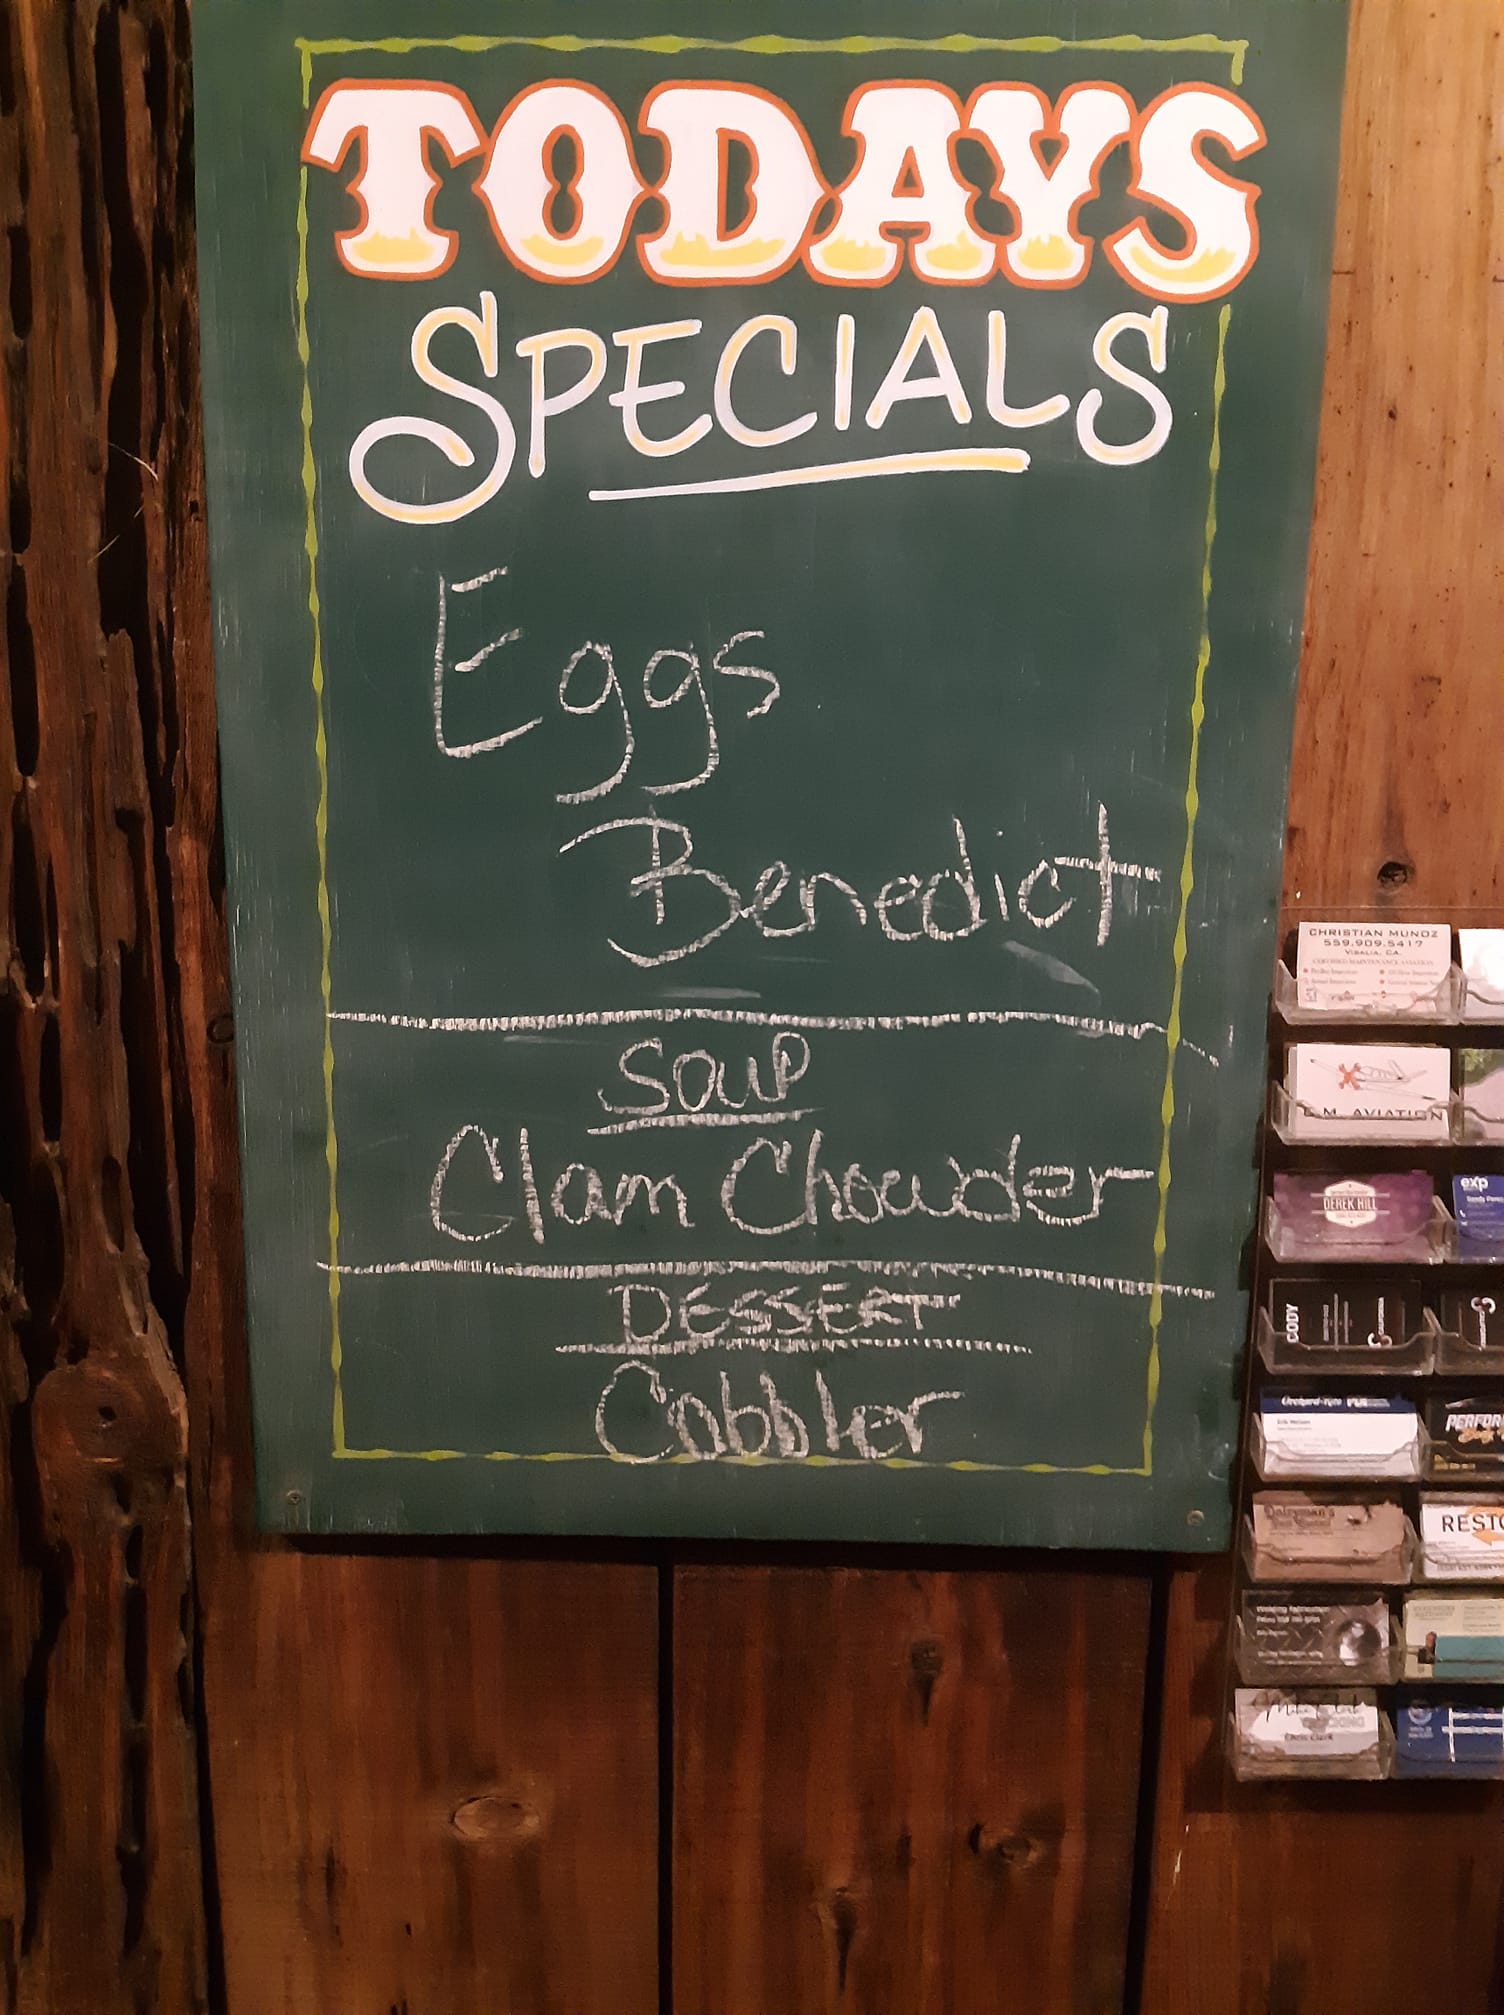 TODAYS
SPECIALS
Eggs
Benedict
SOUP
Clam Chowder
DESSERT
Cobbler
CHRISTIAN MUNOZ
559.909.5417
VISALIA, CA.
CERTIFIED MAINTENANCE AVIATION
C.M. AVIATION
DEREK HILL
exp
CODY
PERFOR
Dairyman's
RESTO
Chris Clark